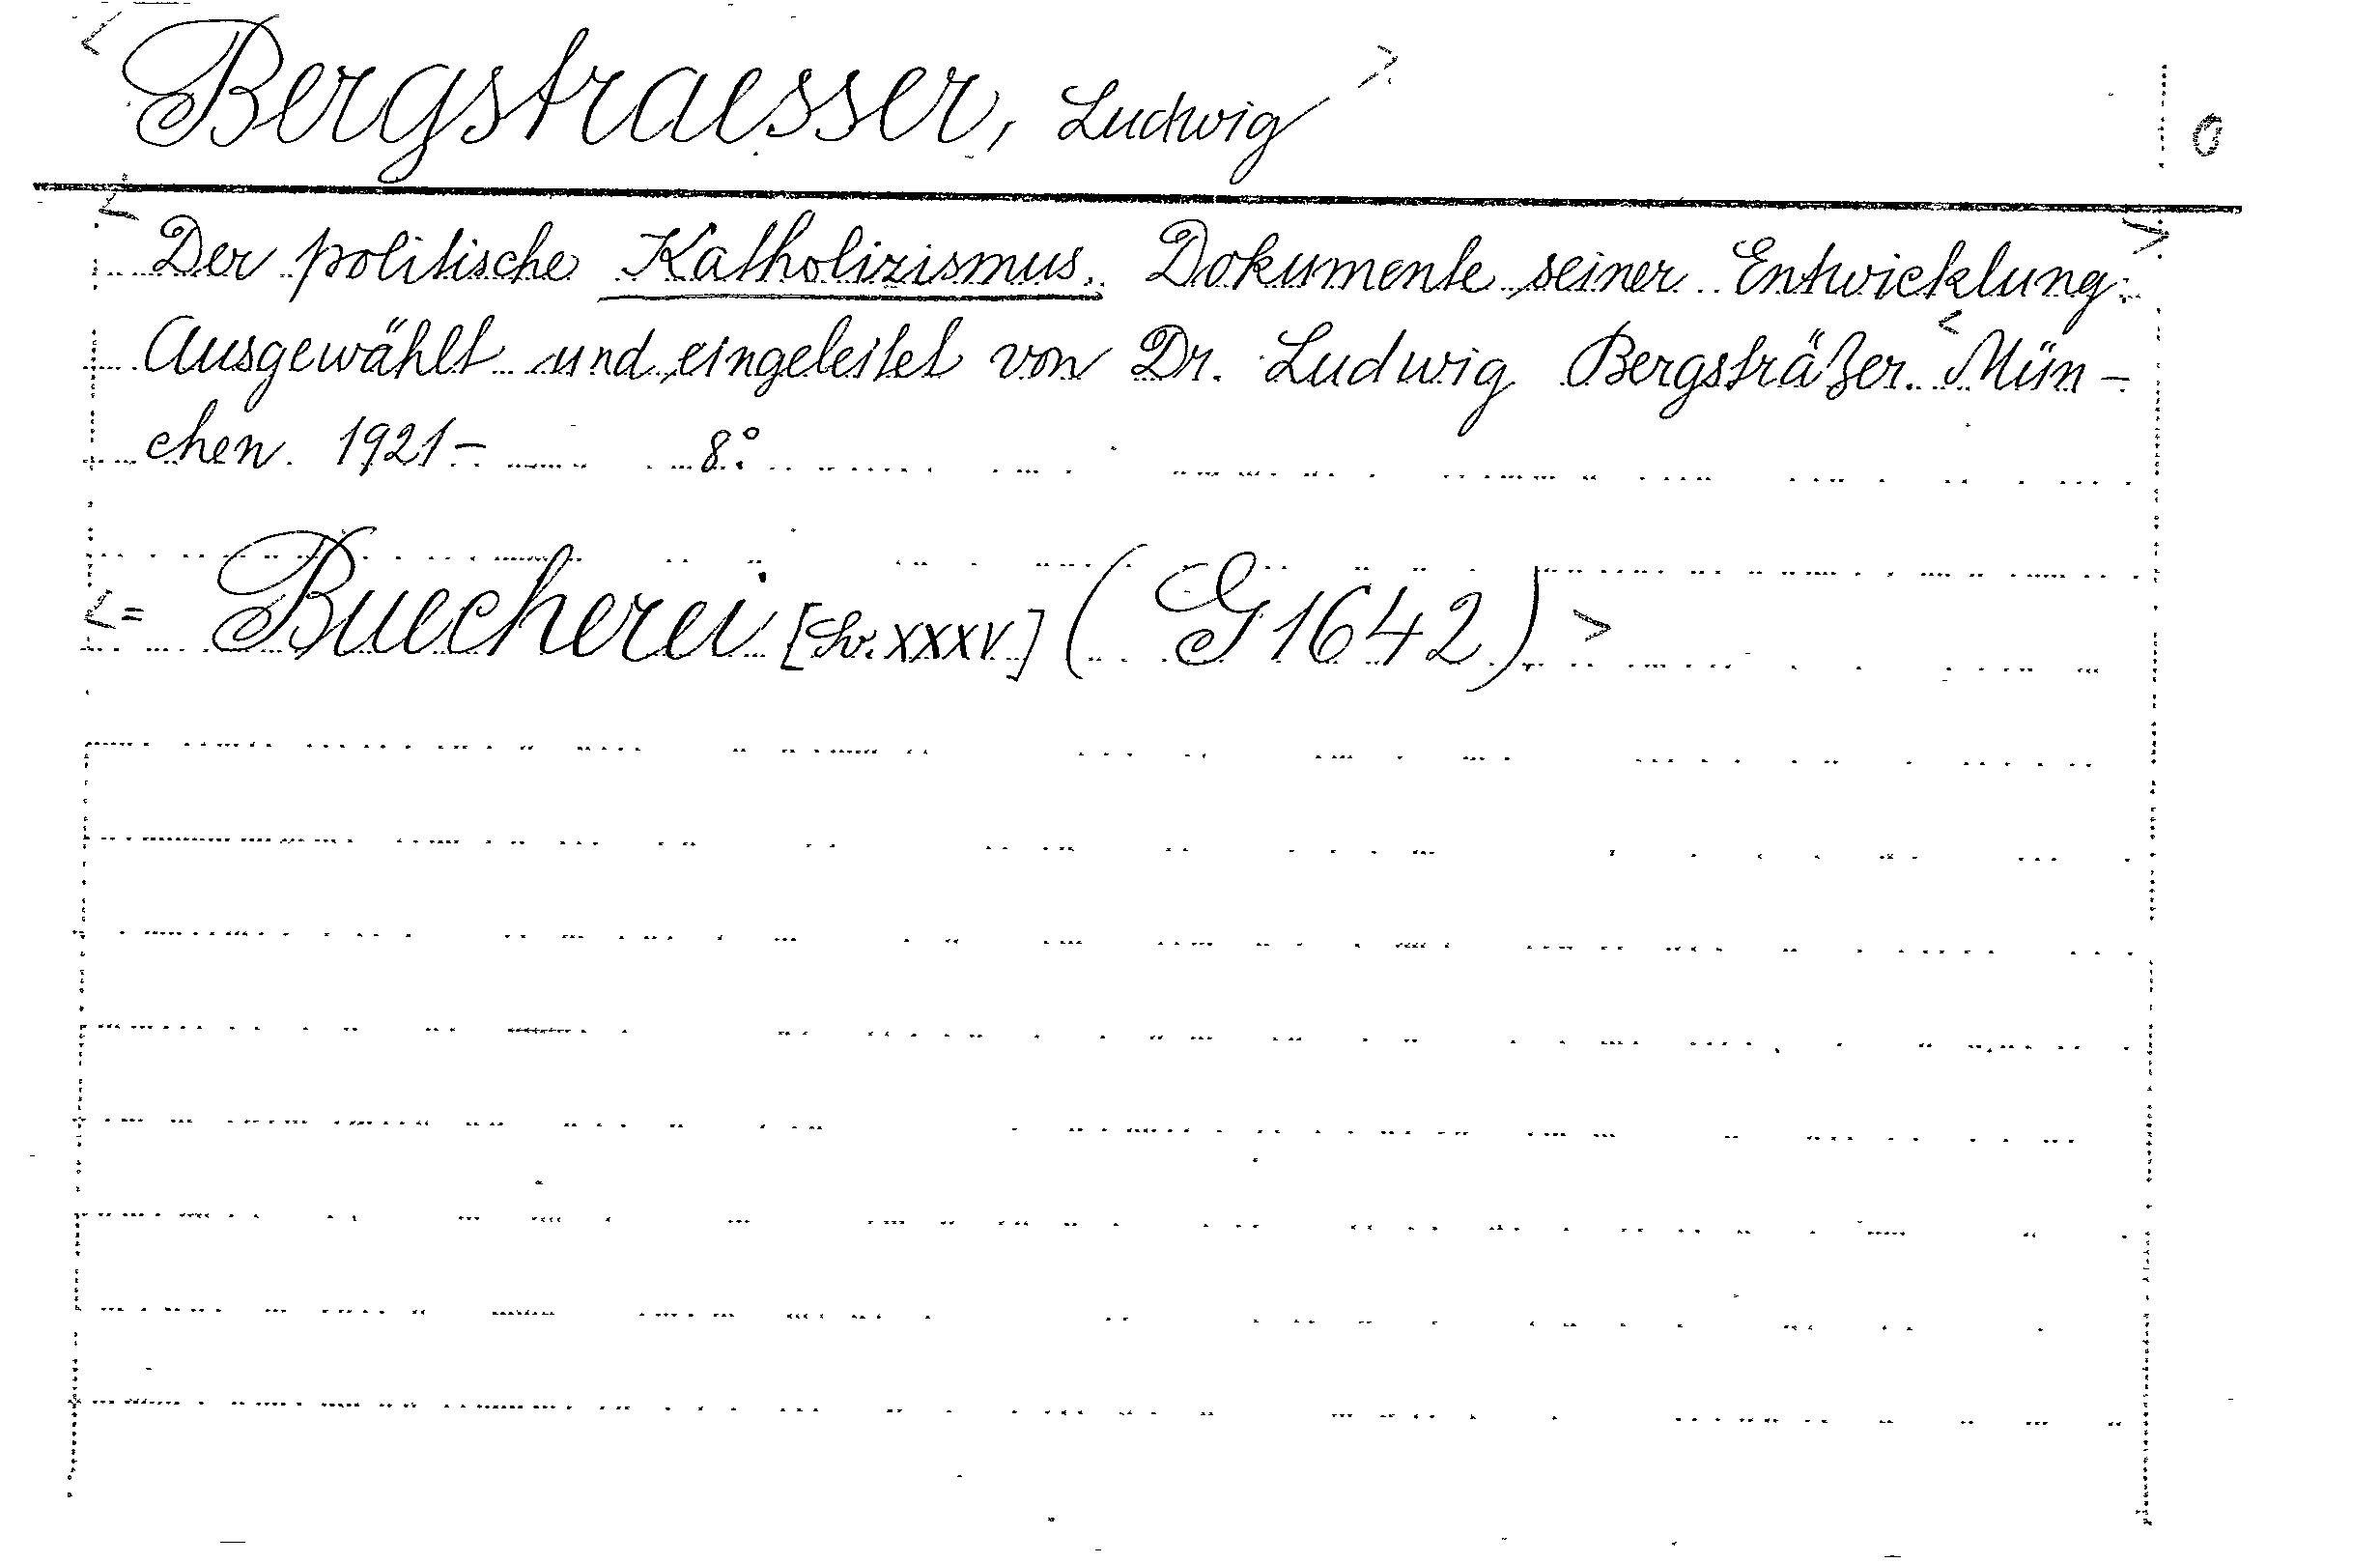 < Bergstraesser, Ludwig > 0
< Der politische Katholizismus. Dokumente seiner Entwicklung. >
Ausgewählt und eingeleitet von Dr. Ludwig Bergsträßer. < Mün-
chen 1921- 8°.
<= Buecherei [ XXXV] (G1642) >